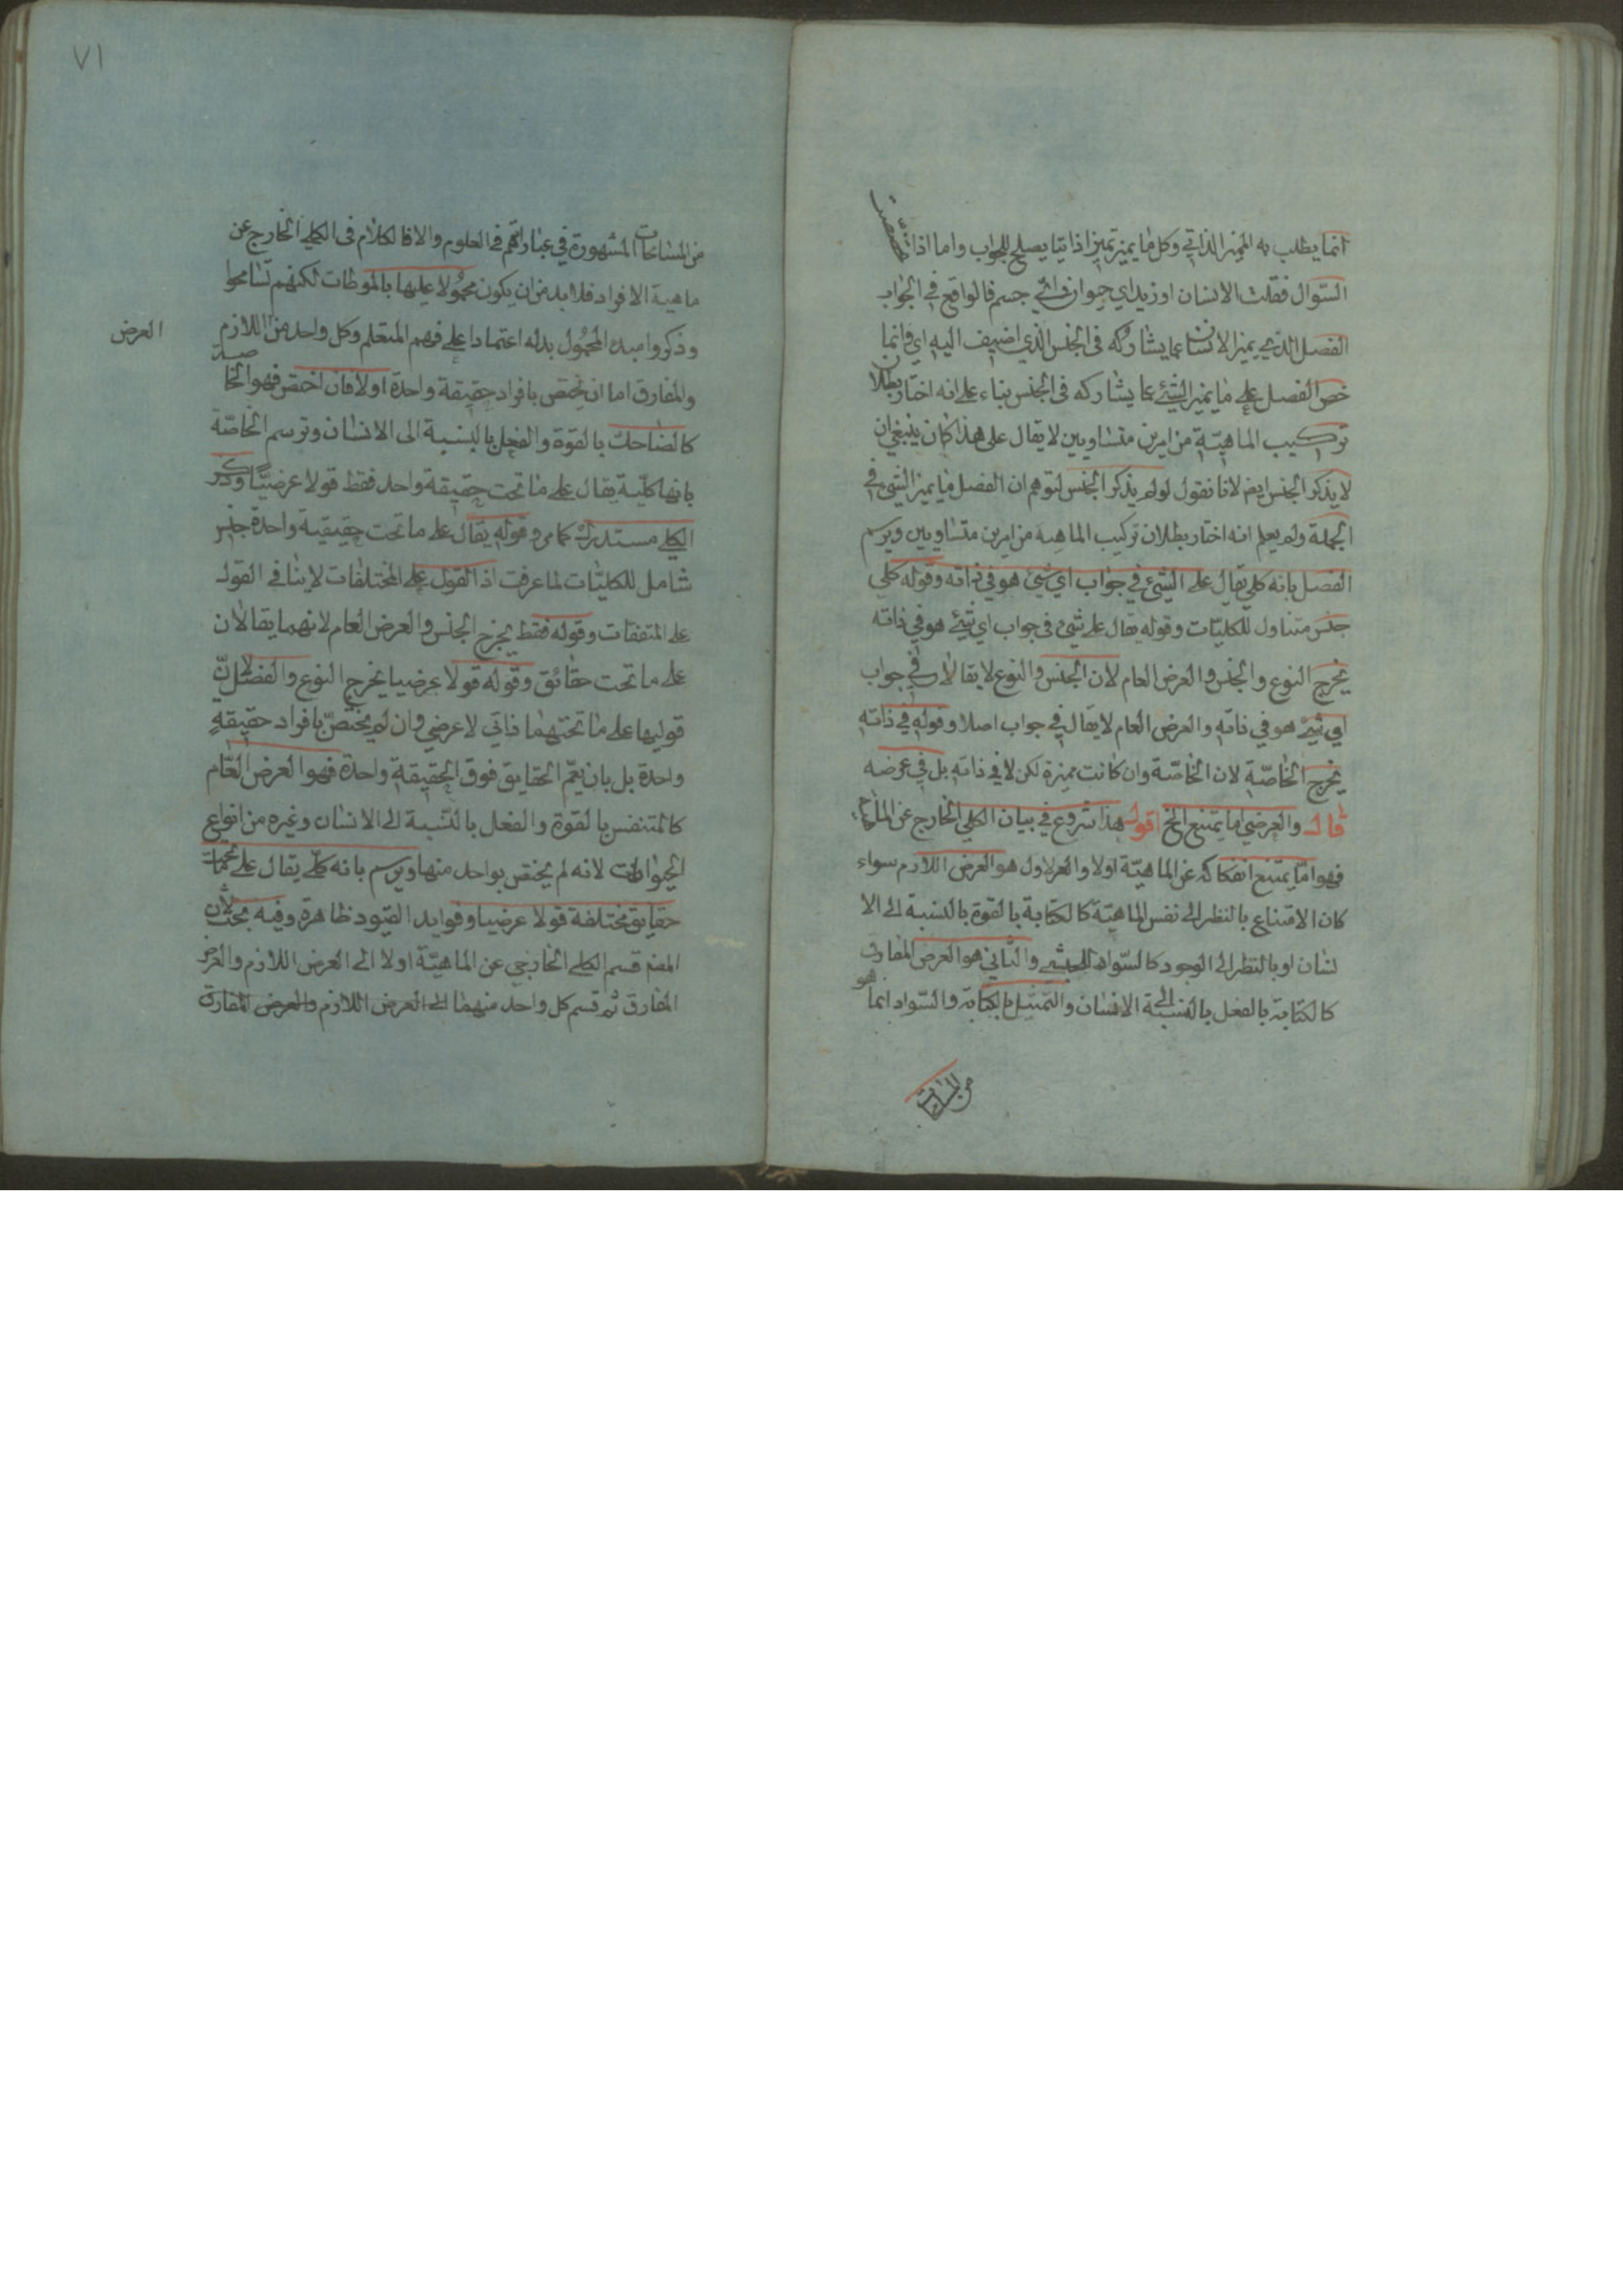 انما يطلب به المميز الذاتي وكل ما يميز تميزا ذاتيا يصلح للجواب واما اذا خصصت
السّوال فقلت الانسان او زيد اي حيوان او اي جسم فالواقع في الجواب
الفصل الذي يميز الانسان عما يشاركه فى الجنس الذي اضيف اليه اي وانما
خص الفصل على ما يميز الشيئ عما يشاركه فى الجنس بناء على انه اختار بطلان
تركيب الماهيّة من امرين متساويين لا يقال على هذا كان ينبغي ان
لا يذكر الجنس ايضا لانا نقول لو لم يذكر الجنس لتوهم ان الفصل ما يميز الشيئ في
الجملة ولم يعلم انه اختار بطلان تركيب الماهية من امرين متساويين ويرسم
الفصل بانه كلي يقال على الشيئ في جواب اي شيئ هو في ذاته وقوله كلي
جنس متناول للكليّات وقوله يقال على شيئ فى جواب اي شيئ هو في ذاته
يخرج النوع والجنس والعرض العام لان الجنس والنوع لا يقالان في جواب
اي شيئ هو في ذاته والعرض العام لا يقال في جواب اصلا وقوله في ذاته
يخرج الخاصّة لان الخاصّة وان كانت مميزة لكن لا في ذاته بل في عرضه
قال والعرضي اما يمتنع الخ اقول هذا شروع في بيان الكلي الخارج عن الماهية
فهو امّا يمتنع انفكاكه عن الماهيّة اولا والاول هو العرض اللازم سواء
كان الامتناع بالنظر الى نفس الماهيّة كالكتابة بالقوة بالنسبة الى الا
نسان او بالنظر الى الوجود كالسّواد للحبشي والثاني هو العرض المفارق
كالكتابة بالفعل بالنسبة الى الانسان والتمثيل بالكتابة والسّواد انما هو
من المسامحات
٧١
من المسامحات المشهورة في عباراتهم في العلوم والا فالكلام فى الكلي الخارج عن
ماهية الافراد فلا بد من ان يكون محمولا عليها بالمواطات لكنهم تسامحوا
وذكروا مبدء المحمول بدله اعتمادا على فهم المتعلم وكل واحد من اللازم
العرض
والمفارق اما ان يختص بافراد حقيقة واحدة اولا فان اختص فهو الخاصة
كالضاحك بالقوة والفعل بالنسبة الى الانسان وترسم الخاصّة
بانها كليّة يقال على ما تحت حقيقة واحد فقط قولا عرضيّا وذكر
الكلي مستدرك كما مر وقوله يقال على ما تحت حقيقية واحدة جنس
شامل للكليّات لما عرفت اذ القول على المختلفات لا ينافي القول
على المتفقات وقوله فقط يخرج الجنس والعرض العام لانهما يقالان
على ما تحت حقائق وقوله قولا عرضيا يخرج النوع والفصل لانّ
قوليها على ما تحتهما ذاتي لا عرضي وان لم يختصّ بافراد حقيقة
واحدة بل بان يعمّ الحقايق فوق الحقيقة واحدة فهو العرض العّام
كالمتنفس بالقوة والفعل بالنسبة الى الانسان وغيره من انواع
الحيوانات لانه لم يختص بواحد منها ويرسم بانه كلّي يقال على ما تحت
حقايق مختلفة قولا عرضيا وفوايد القيود ظاهرة وفيه بحث لان
المصنف قسم الكلي الخارجي عن الماهيّة اولا الى العرض اللازم والعرض
المفارق ثم قسم كل واحد منهما الى العرض اللازم والعرض المفارق